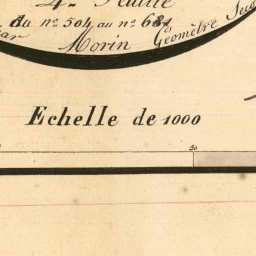 4e Feuille
du nº 504 au nº 681
Par Morin Géomètre
Echelle de 1000
50